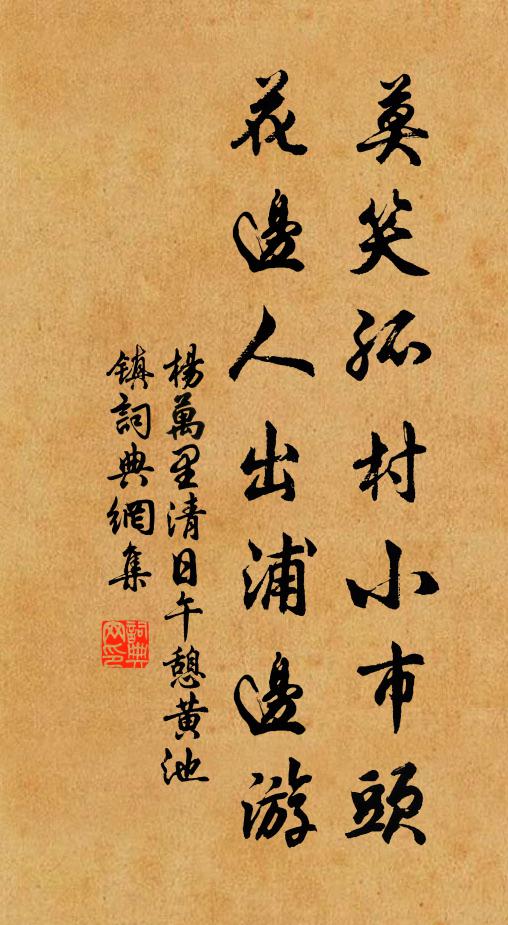 莫笑孤村小市頭
花邊人出浦邊游
楊萬里清日午憩黄池
镇詞典網集
詞典
网印